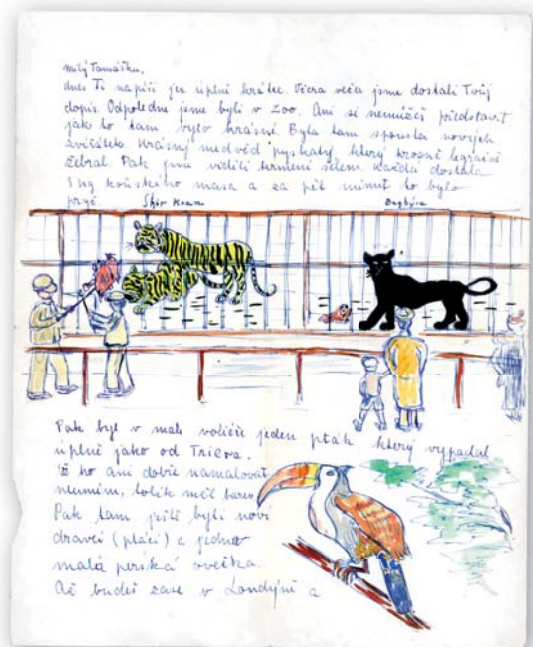 milý Tomášku,
dnes Ti napíši jen úplně krátce. Včera večer jsme dostali Tvůj
dopis. Odpoledne jsme byli v Zoo. Ani si nemůžeš představit
jak to tam bylo krásné. Byla tam spousta nových
zvířátek. Krásný medvěd pyskatý který hrozně legračně
žebral. Pak jsme viděli krmení šelem. Každá dostala
3 kg koňského masa a za pět minut to bylo
pryč. Shir Kan Baghýra
Pak byl v malé voliéře jeden pták který vypadal
úplně jako od Trnky.
že ho ani dobře namalovat
neumím, tolik měl barev
Pak tam ještě byli noví
dravci (ptáci) a jedna
malá perská ovečka.
Až budeš zase v Londýně a